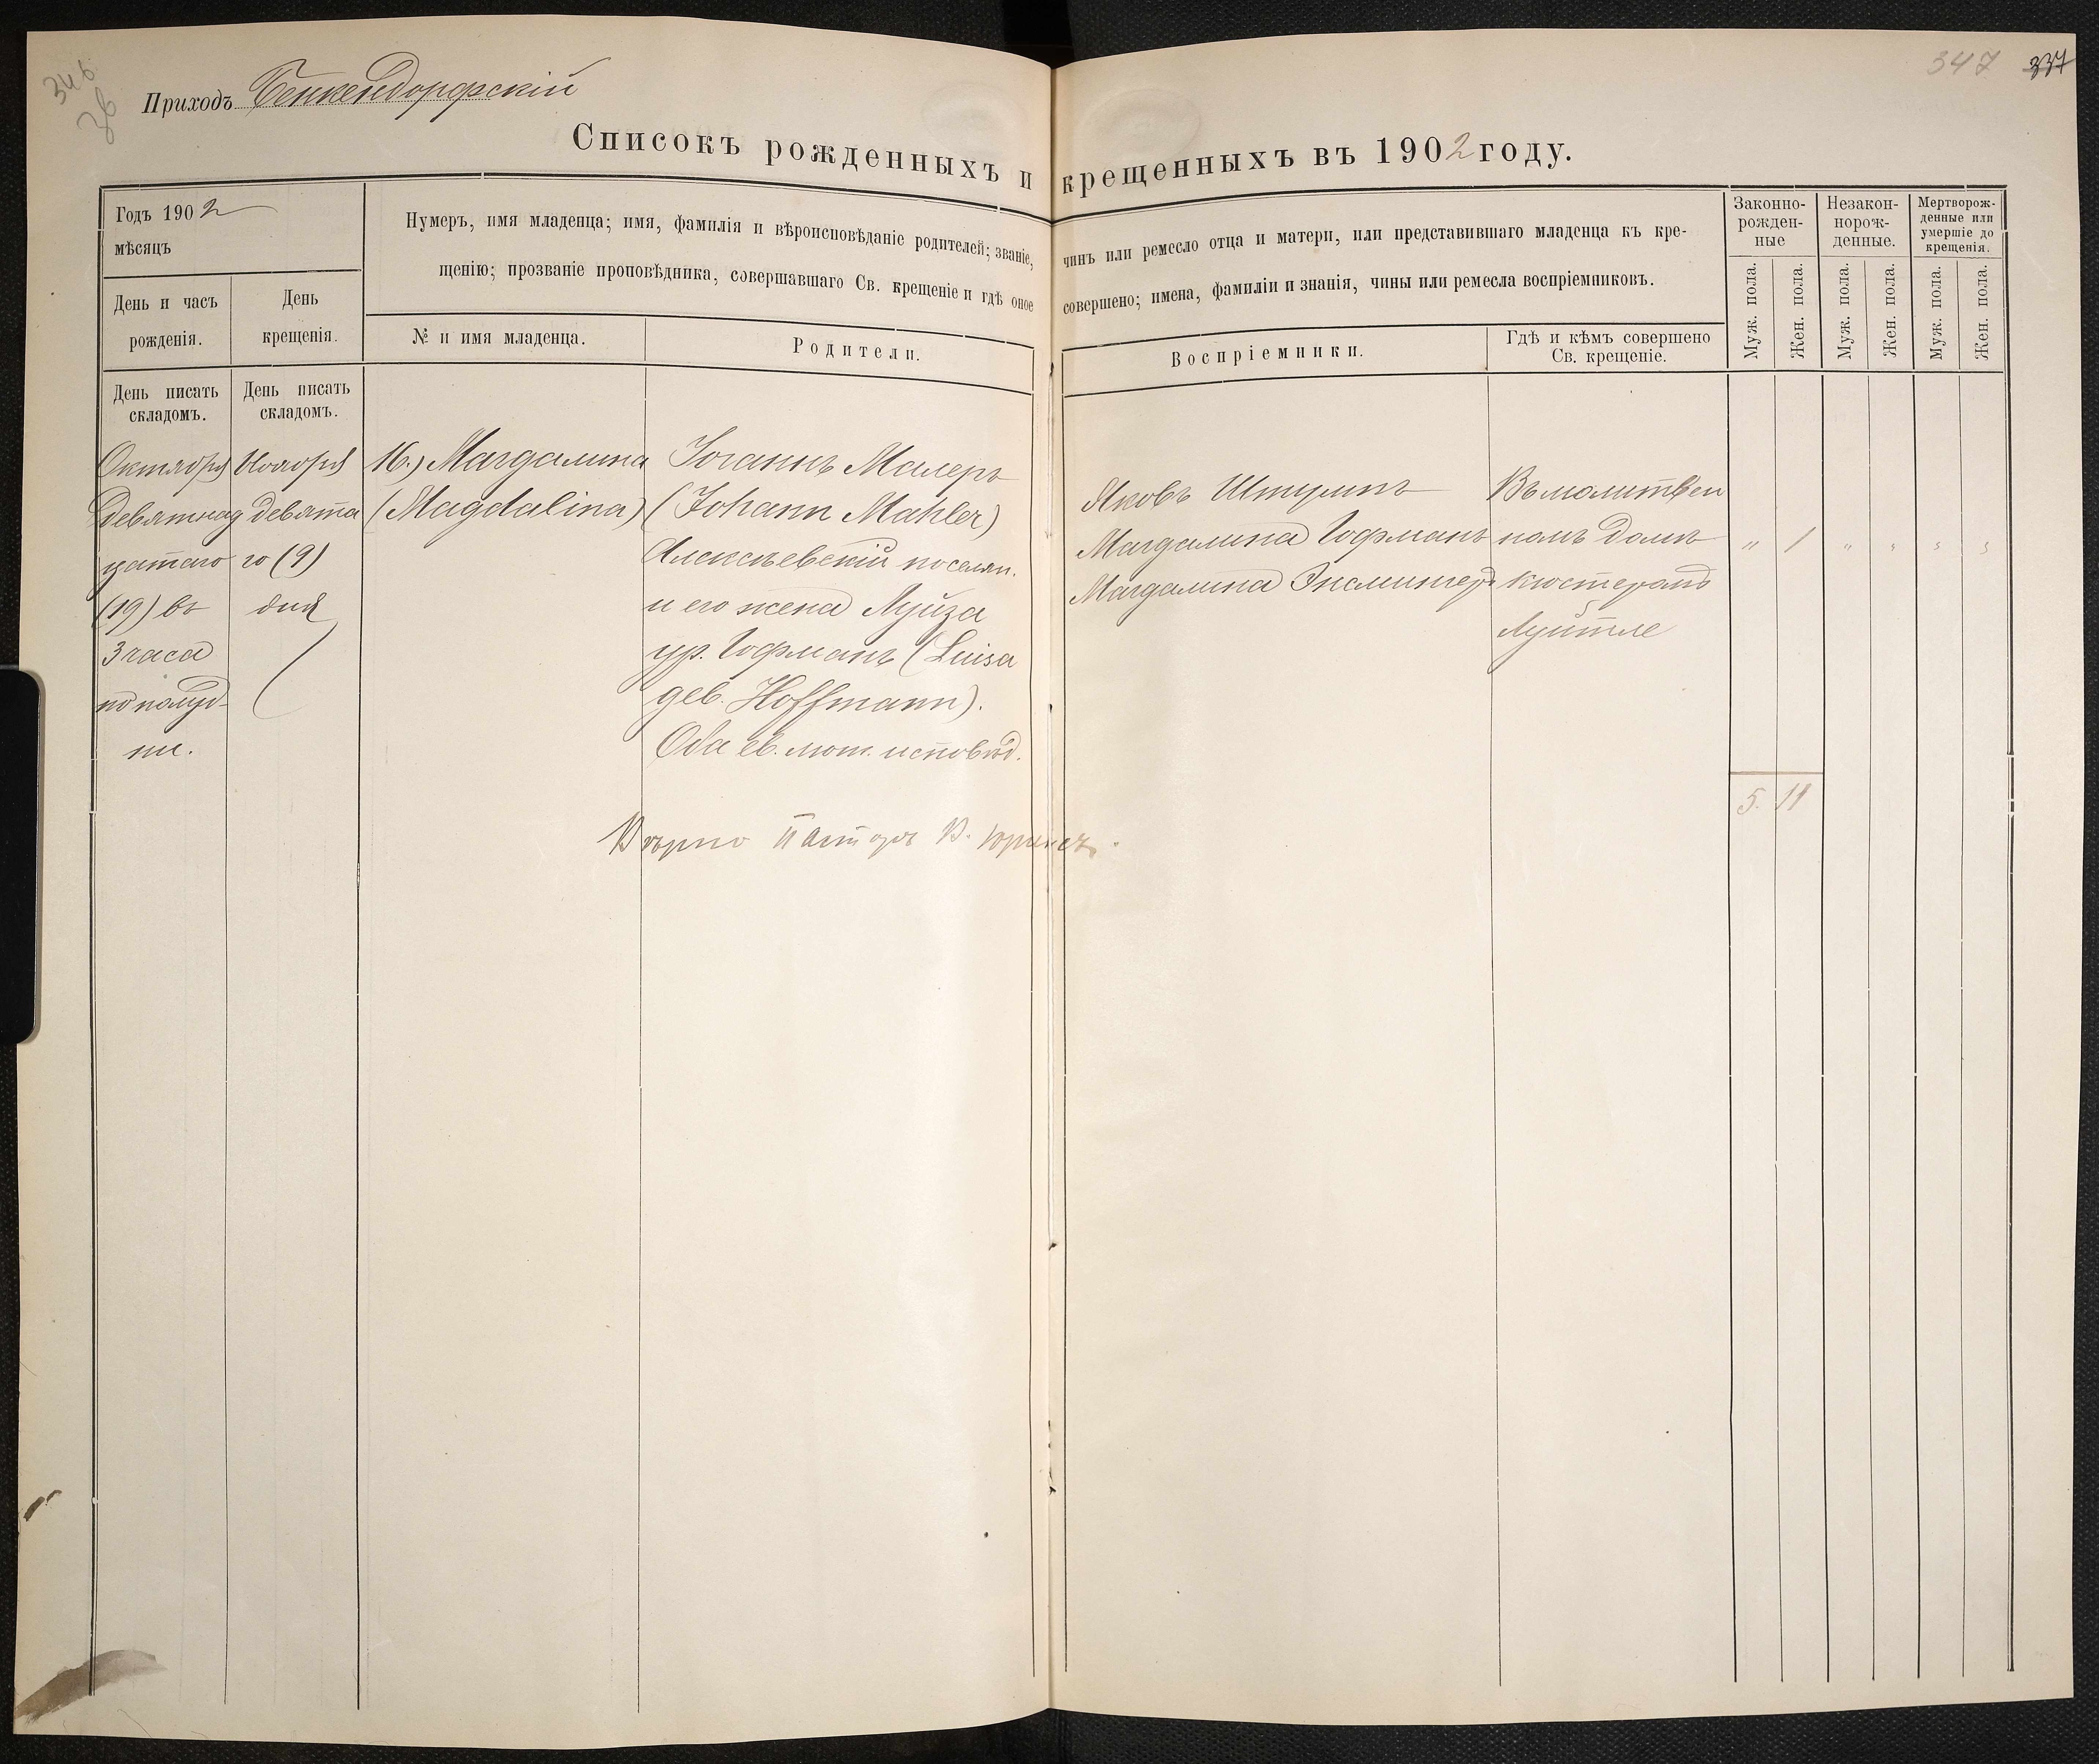 346
36
Приходъ Бенкендорфскій
347 337
Списокъ рожденныхъ и крещенныхъ въ 1902 году.
Годъ 1902
мѣсяцъ
День и часъ
рожденія.
День
крещенія.
Нумеръ, имя младенца; имя, фамилія и вѣроисповѣданіе родителей; званіе, чинъ или ремесло отца и матери, или представившаго младенца къ кре-
щенію; прозваніе проповѣдника, совершавшаго Св. крещеніе и гдѣ оное совершено; имена, фамиліи и знанія, чины или ремесла воспріемниковъ.
№ и имя младенца.
Родители.
Воспріемники.
Гдѣ и кѣмъ совершено
Св. крещеніе.
Законно-
рожден-
ные
Незакон-
норож-
денные.
Мертворож-
денные или
умершіе до
крещенія.
Муж. пола.
Жен. пола.
Муж. пола.
Жен. пола.
Муж. пола.
Жен. пола.
День писать
складомъ.
День писать
складомъ.
Октября
Девятнад
цатаго
(19) въ
3 часа
по полуд-
ни.
Ноября
девята
го (9)
дня
16.) Магдалина
(Magdalina)
Іоганнъ Малеръ
(Johann Mahler)
Алексѣевскій поселян.
и его жена Луиза
ур. Гофманъ (Luisa
geb. Hoffmann).
Оба ев. лют. исповѣд.
Яковъ Штумпъ
Магдалина Гофманъ
Магдалина Энсмингеръ
Въ молитвен
номъ домѣ
кюстеромъ
Луитле
" 1 " " " "
5. 11
Вѣрно Пасторъ В.